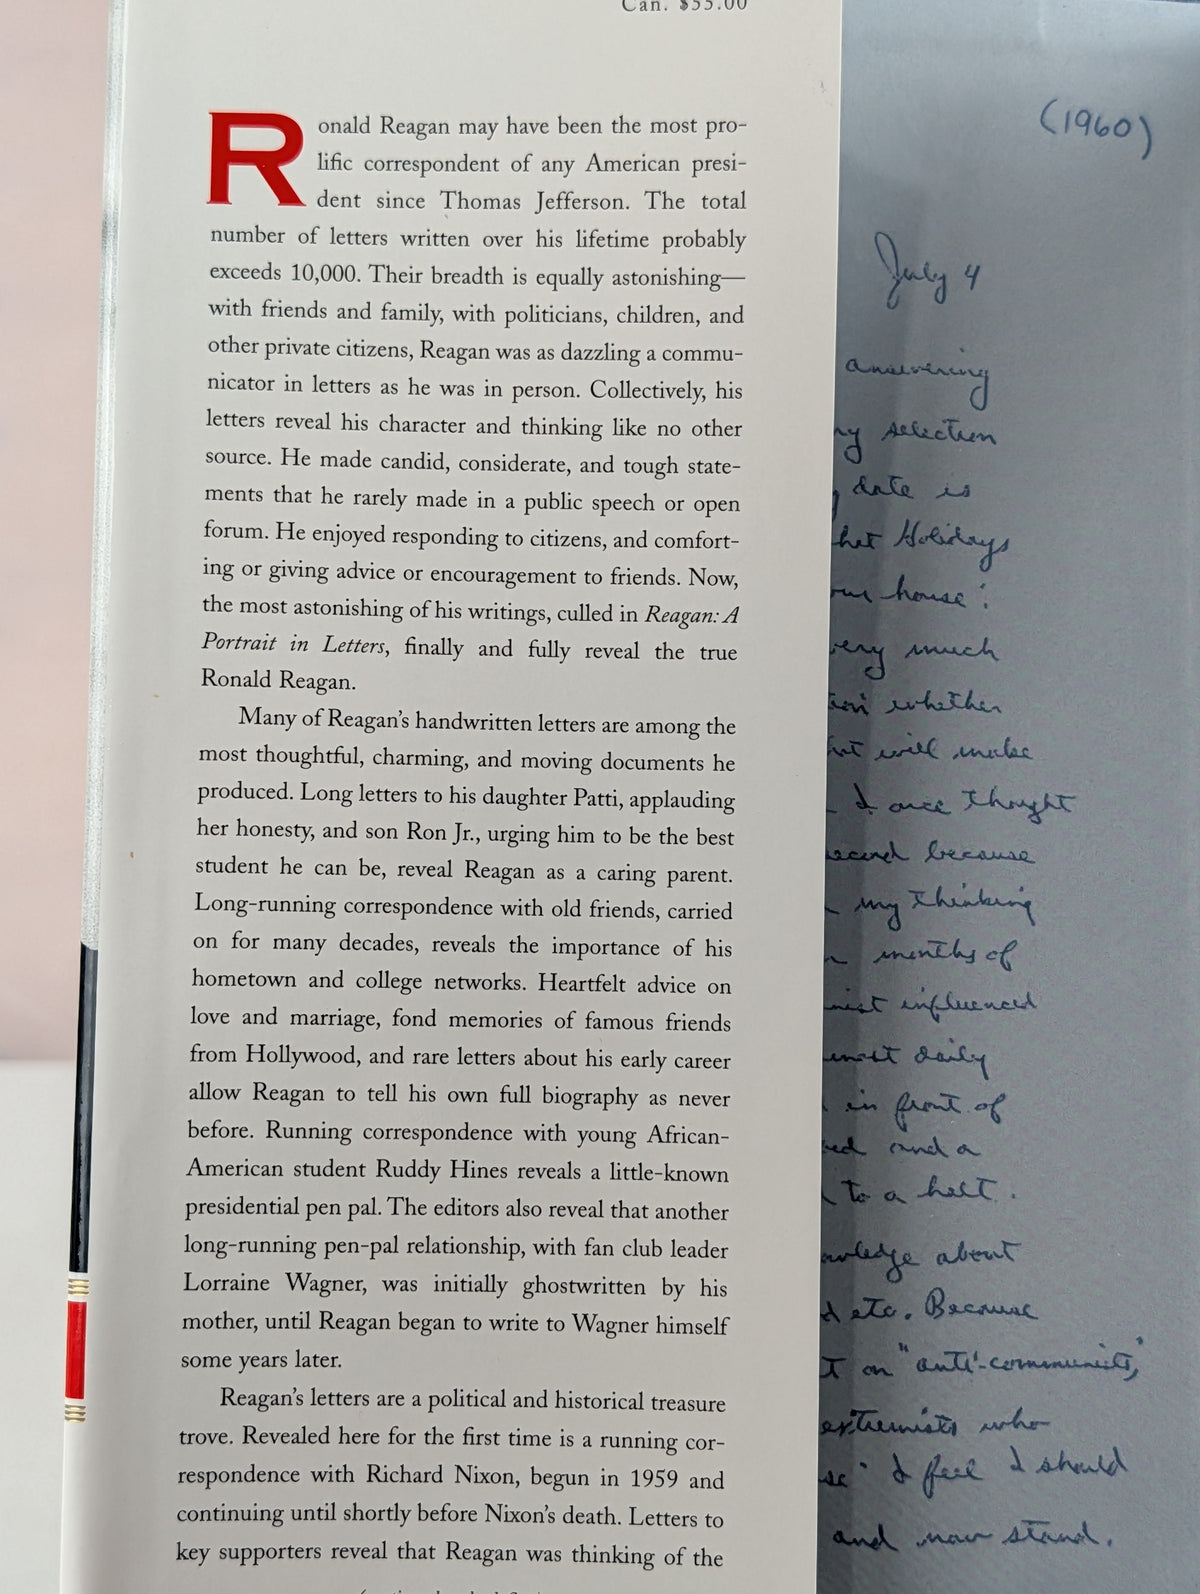 Can. $35.00
Ronald Reagan may have been the most pro-
lific correspondent of any American presi-
dent since Thomas Jefferson. The total
number of letters written over his lifetime probably
exceeds 10,000. Their breadth is equally astonishing—
with friends and family, with politicians, children, and
other private citizens, Reagan was as dazzling a commu-
nicator in letters as he was in person. Collectively, his
letters reveal his character and thinking like no other
source. He made candid, considerate, and tough state-
ments that he rarely made in a public speech or open
forum. He enjoyed responding to citizens, and comfort-
ing or giving advice or encouragement to friends. Now,
the most astonishing of his writings, culled in Reagan: A
Portrait in Letters, finally and fully reveal the true
Ronald Reagan.
Many of Reagan's handwritten letters are among the
most thoughtful, charming, and moving documents he
produced. Long letters to his daughter Patti, applauding
her honesty, and son Ron Jr., urging him to be the best
student he can be, reveal Reagan as a caring parent.
Long-running correspondence with old friends, carried
on for many decades, reveals the importance of his
hometown and college networks. Heartfelt advice on
love and marriage, fond memories of famous friends
from Hollywood, and rare letters about his early career
allow Reagan to tell his own full biography as never
before. Running correspondence with young African-
American student Ruddy Hines reveals a little-known
presidential pen pal. The editors also reveal that another
long-running pen-pal relationship, with fan club leader
Lorraine Wagner, was initially ghostwritten by his
mother, until Reagan began to write to Wagner himself
some years later.
Reagan's letters are a political and historical treasure
trove. Revealed here for the first time is a running cor-
respondence with Richard Nixon, begun in 1959 and
continuing until shortly before Nixon's death. Letters to
key supporters reveal that Reagan was thinking of the
(1960)
July 4
answering
selection
date is
Holidays
house.
very much
whether
will make
I once thought
because
my thinking
months of
influenced
daily
in front of
and a
to a halt.
about
etc. Because
on "anti-communists,"
extremists who
I feel I should
and now stand.